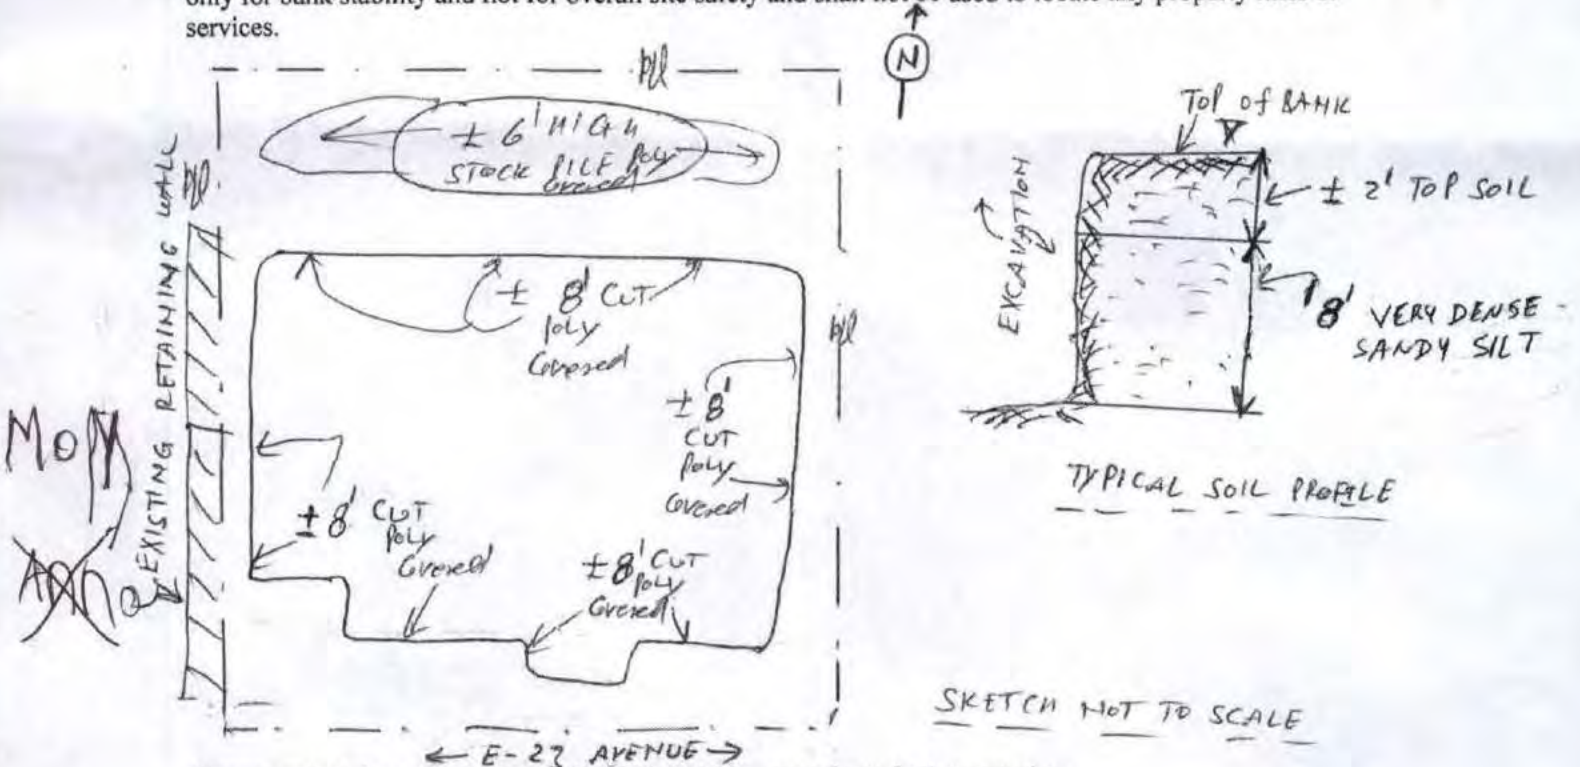 services.
N
± 6' HIGH
STOCK PILE Poly
Covered
EXISTING RETAINING WALL
± 8' CUT
Poly
Covered
± 8'
CUT
Poly
Covered
± 8' CUT
Poly
Covered
± 8' CUT
Poly
Covered
MOM
Anna
TOP of BANK
EXCAVATION
± 2' TOP SOIL
8' VERY DENSE
SANDY SILT
TYPICAL SOIL PROFILE
SKETCH NOT TO SCALE
AVENUE